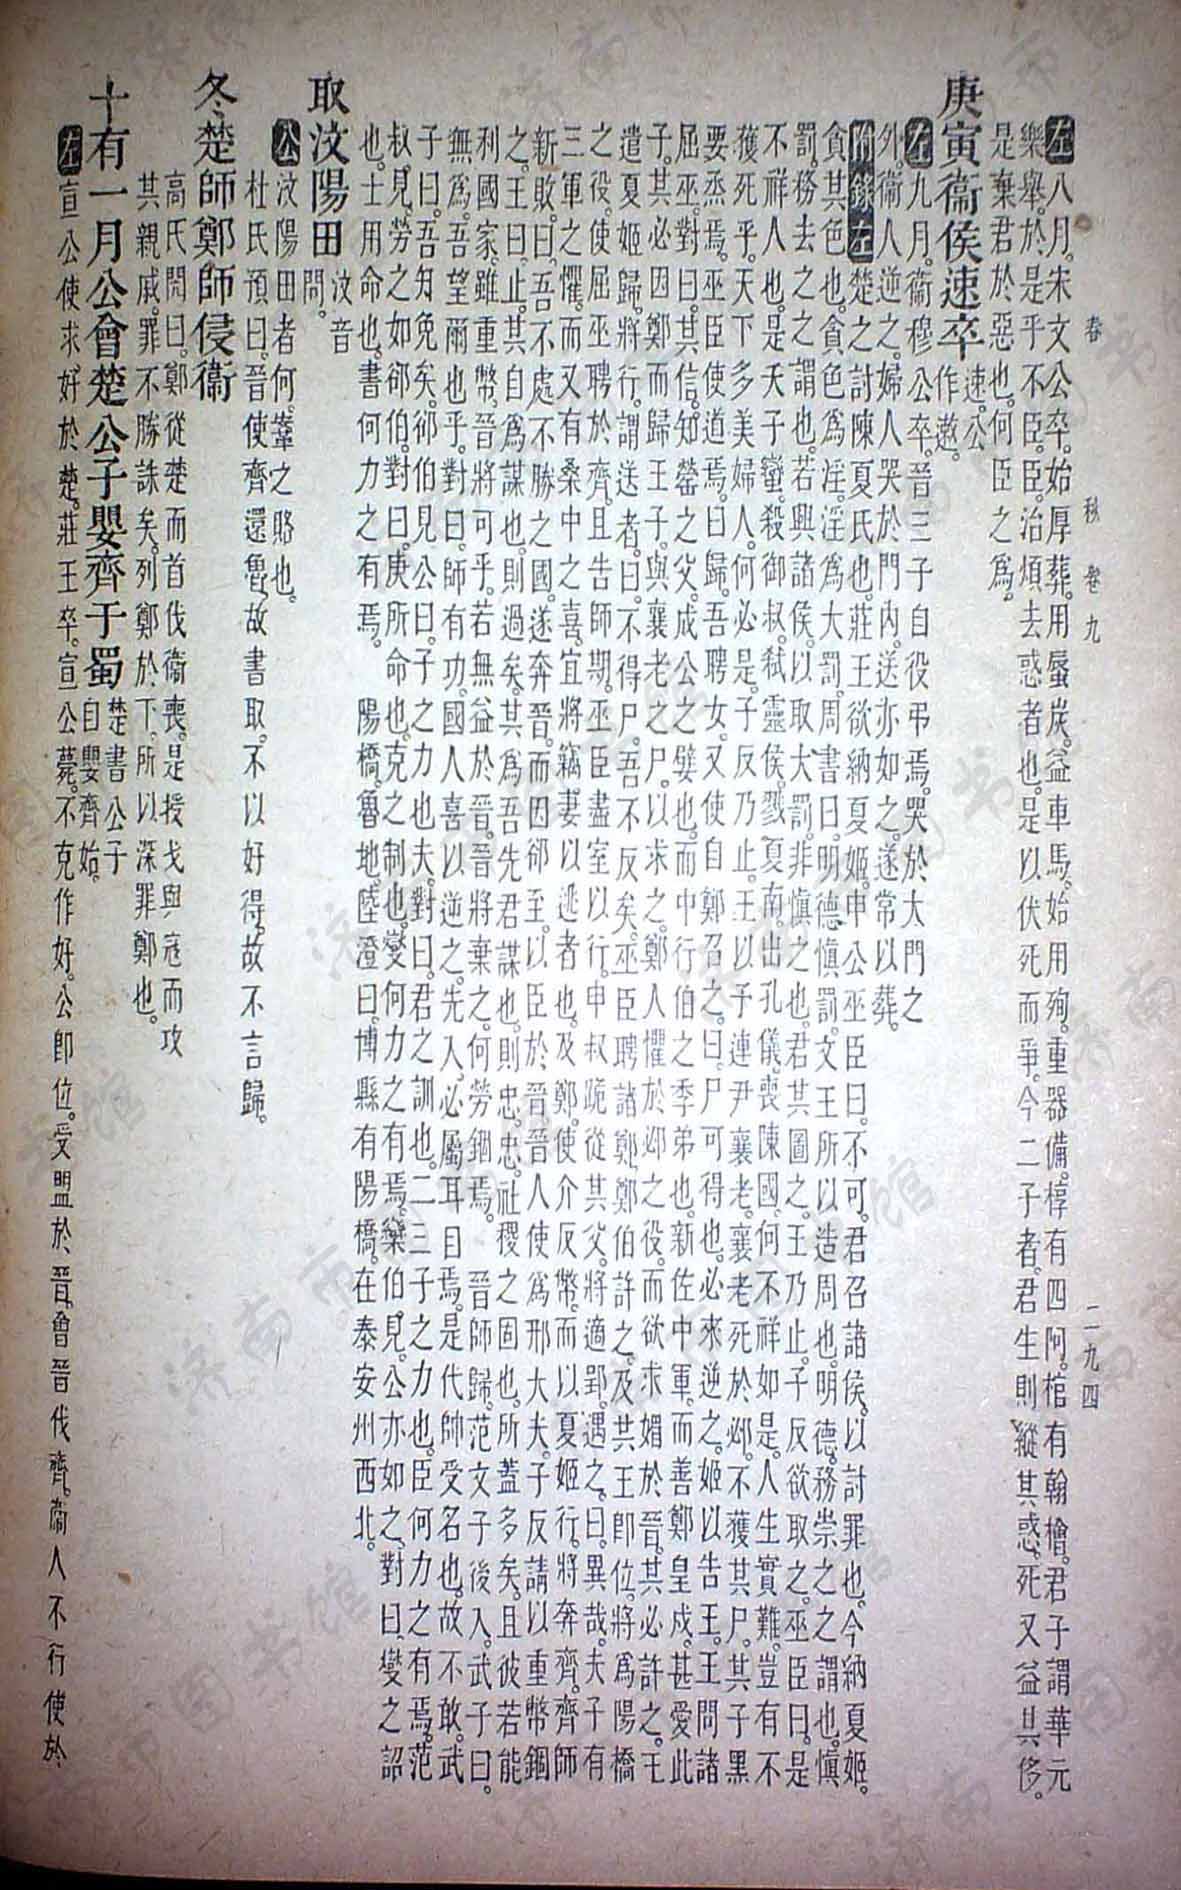 春秋 卷九 二九四
左 八月。宋文公卒。始厚葬。用蜃炭。益車馬。始用殉。重器備。椁有四阿。棺有翰檜。君子謂華元
樂舉。於是乎不臣。臣。治煩去惑者也。是以伏死而爭。今二子者。君生則縱其惑。死又益其侈。
是棄君於惡也。何臣之爲。
庚寅衞侯速卒 速。公作遬。
左 九月。衞穆公卒。晉三子自役弔焉。哭於大門之
外。衞人逆之。婦人哭於門內。送亦如之。遂常以葬。
附錄左 楚之討陳夏氏也。莊王欲納夏姬。申公巫臣曰。不可。君召諸侯。以討罪也。今納夏姬。
貪其色也。貪色爲淫。淫爲大罰。周書曰。明德慎罰。文王所以造周也。明德。務崇之之謂也。慎
罰。務去之之謂也。若興諸侯。以取大罰。非慎之也。君其圖之。王乃止。子反欲取之。巫臣曰。是
不祥人也。是夭子蠻。殺御叔。弒靈侯。戮夏南。出孔儀。喪陳國。何不祥如是。人生實難。豈有不
獲死乎。天下多美婦人。何必是。子反乃止。王以予連尹襄老。襄老死於邲。不獲其尸。其子黑
要烝焉。巫臣使道焉。曰歸。吾聘女。又使自鄭召之。曰。尸可得也。必來逆之。姬以告王。王問諸
屈巫。對曰。其信。知罃之父。成公之嬖也。而中行伯之季弟也。新佐中軍。而善鄭皇戌。甚愛此
子。其必因鄭而歸王子。與襄老之尸。以求之。鄭人懼於邲之役。而欲求媚於晉。其必許之。王
遣夏姬歸。將行。謂送者。曰。不得尸。吾不反矣。巫臣聘諸鄭。鄭伯許之。及共王即位。將爲陽橋
之役。使屈巫聘於齊。且告師期。巫臣盡室以行。申叔跪從其父。將適郢。遇之。曰。異哉。夫子有
三軍之懼。而又有桑中之喜。宜將竊妻以逃者也。及鄭。使介反幣。而以夏姬行。將奔齊。齊師
新敗。曰。吾不處不勝之國。遂奔晉。而因郤至。以臣於晉。晉人使爲邢大夫。子反請以重幣錮
之。王曰。止。其自爲謀也。則過矣。其爲吾先君謀也。則忠。忠。社稷之固也。所蓋多矣。且彼若能
利國家。雖重幣。晉將可乎。若無益於晉。晉將棄之。何勞錮焉。 晉師歸。范文子後入。武子曰。
無爲吾望爾也乎。對曰。師有功。國人喜以逆之。先入。必屬耳目焉。是代帥受名也。故不敢。武
子曰。吾知免矣。郤伯見。公曰。子之力也夫。對曰。君之訓也。二三子之力也。臣何力之有焉。范
叔見。勞之如郤伯。對曰。庚所命也。克之制也。燮何力之有焉。欒伯見。公亦如之。對曰。燮之詔
也。士用命也。書何力之有焉。 陽橋。魯地。陸澄曰。博縣有陽橋。在泰安州西北。
取汶陽田 汶音問。
公 汶陽田者何。鞌之賂也。
杜氏預曰。晉使齊還魯。故書取。不以好得。故不言歸。
冬楚師鄭師侵衞
高氏閌曰。鄭從楚而首伐衞喪。是授戈與寇而攻
其親戚。罪不勝誅矣。列鄭於下。所以深罪鄭也。
十有一月公會楚公子嬰齊于蜀 楚書公子自嬰齊始。
左 宣公使求好於楚。莊王卒。宣公薨。不克作好。公即位。受盟於晉。會晉伐齊。衞人不行使於